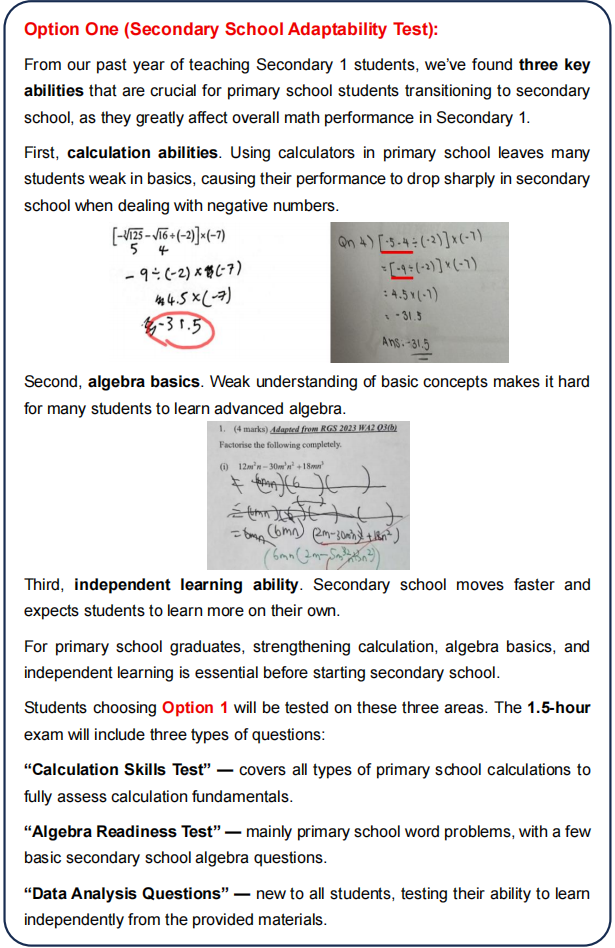 Option One (Secondary School Adaptability Test):
From our past year of teaching Secondary 1 students, we've found three key
abilities that are crucial for primary school students transitioning to secondary
school, as they greatly affect overall math performance in Secondary 1.
First, calculation abilities. Using calculators in primary school leaves many
students weak in basics, causing their performance to drop sharply in secondary
school when dealing with negative numbers.
[-∛125 - √16 ÷ (-2)] × (-7)
5 4
- 9 ÷ (-2) × (-7)
4.5 × (-7)
-31.5
Qn 4) [-5-4 ÷ (-2)] × (-7)
= [-9 ÷ (-2)] × (-7)
= 4.5 × (-7)
= -31.5
Ans: -31.5
Second, algebra basics. Weak understanding of basic concepts makes it hard
for many students to learn advanced algebra.
1. (4 marks) Adapted from RGS 2023 WA2 Q3(b)
Factorise the following completely.
(i) 12m²n – 30m³n² + 18mn³
Third, independent learning ability. Secondary school moves faster and
expects students to learn more on their own.
For primary school graduates, strengthening calculation, algebra basics, and
independent learning is essential before starting secondary school.
Students choosing Option 1 will be tested on these three areas. The 1.5-hour
exam will include three types of questions:
“Calculation Skills Test” — covers all types of primary school calculations to
fully assess calculation fundamentals.
“Algebra Readiness Test” — mainly primary school word problems, with a few
basic secondary school algebra questions.
“Data Analysis Questions” — new to all students, testing their ability to learn
independently from the provided materials.